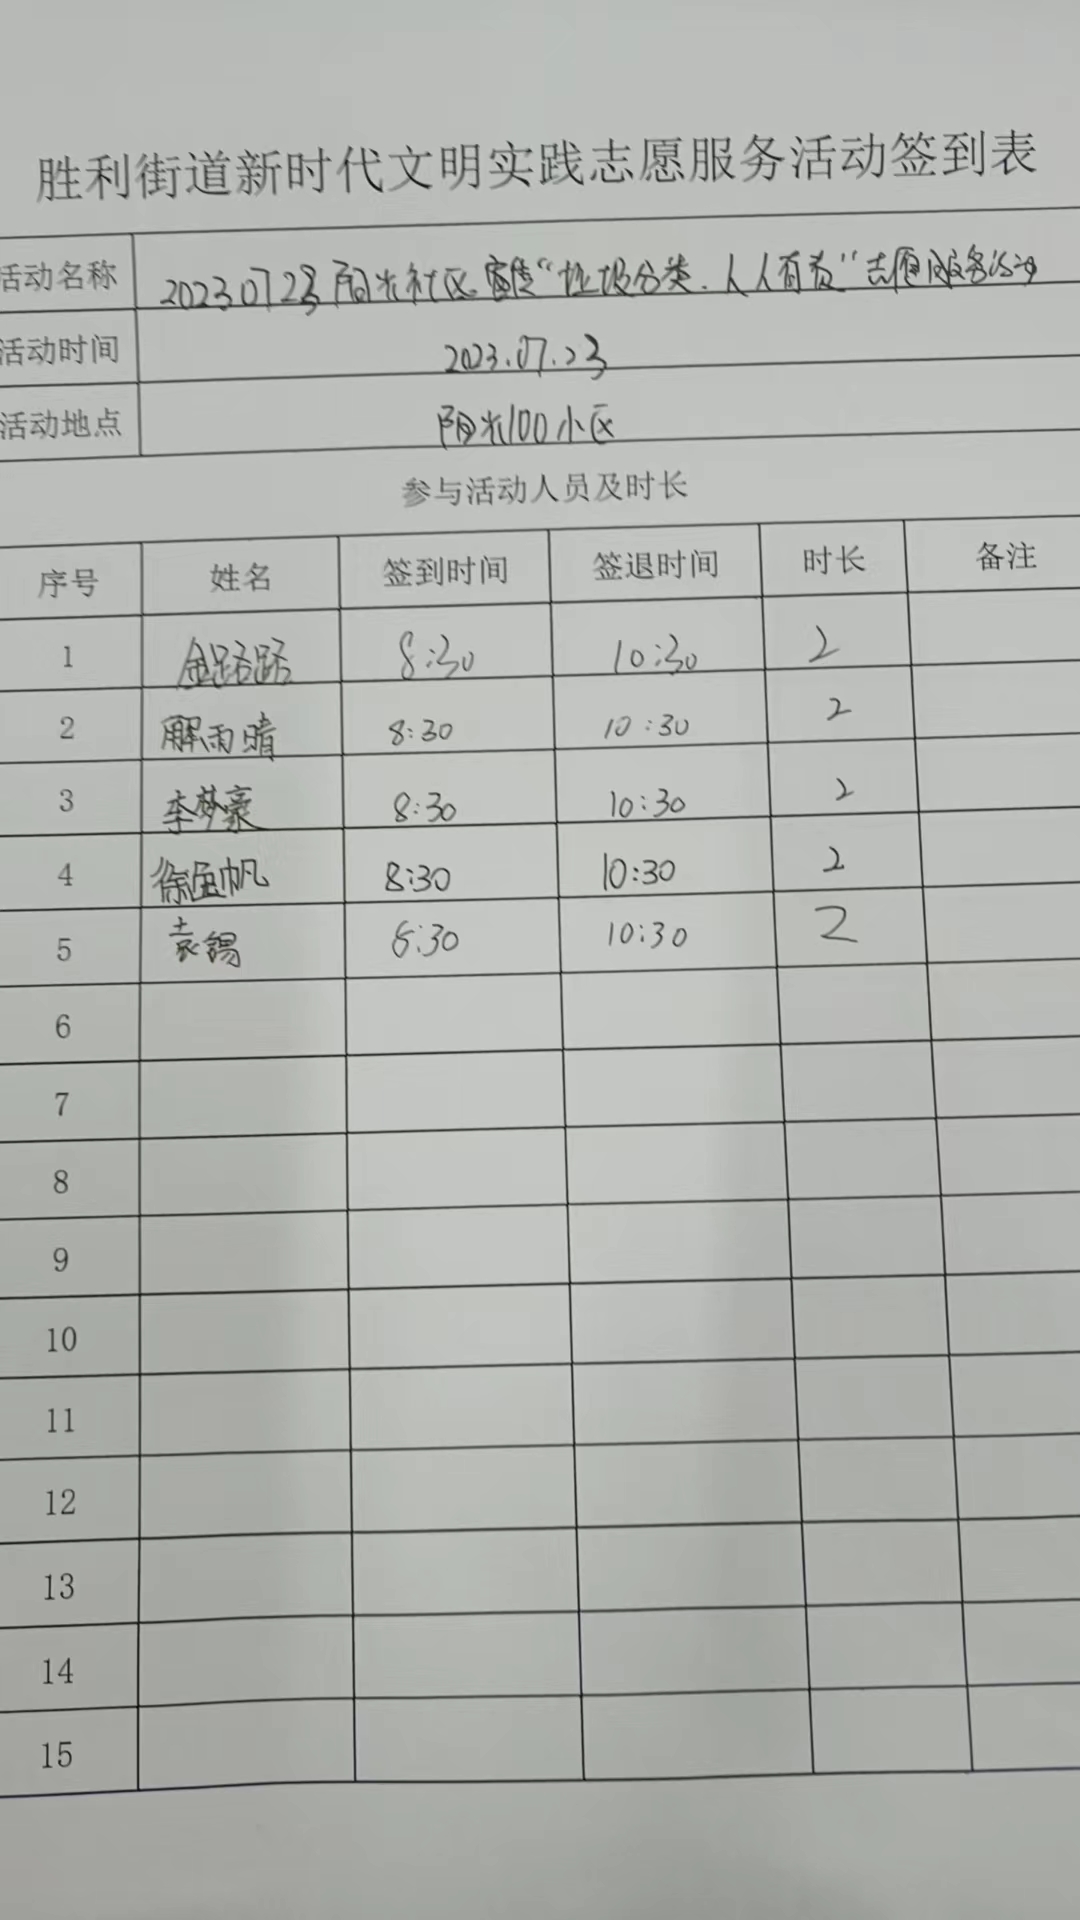 胜利街道新时代文明实践志愿服务活动签到表
活动名称 20230723阳光社区宣传“垃圾分类.人人有责”志愿服务活动
活动时间 2023.07.23
活动地点 阳光100小区
参与活动人员及时长
序号 姓名 签到时间 签退时间 时长 备注
1 金路路 8:30 10:30 2
2 解雨晴 8:30 10:30 2
3 李梦豪 8:30 10:30 2
4 8:30 10:30 2
5 袁锡 8:30 10:30 2
6
7
8
9
10
11
12
13
14
15